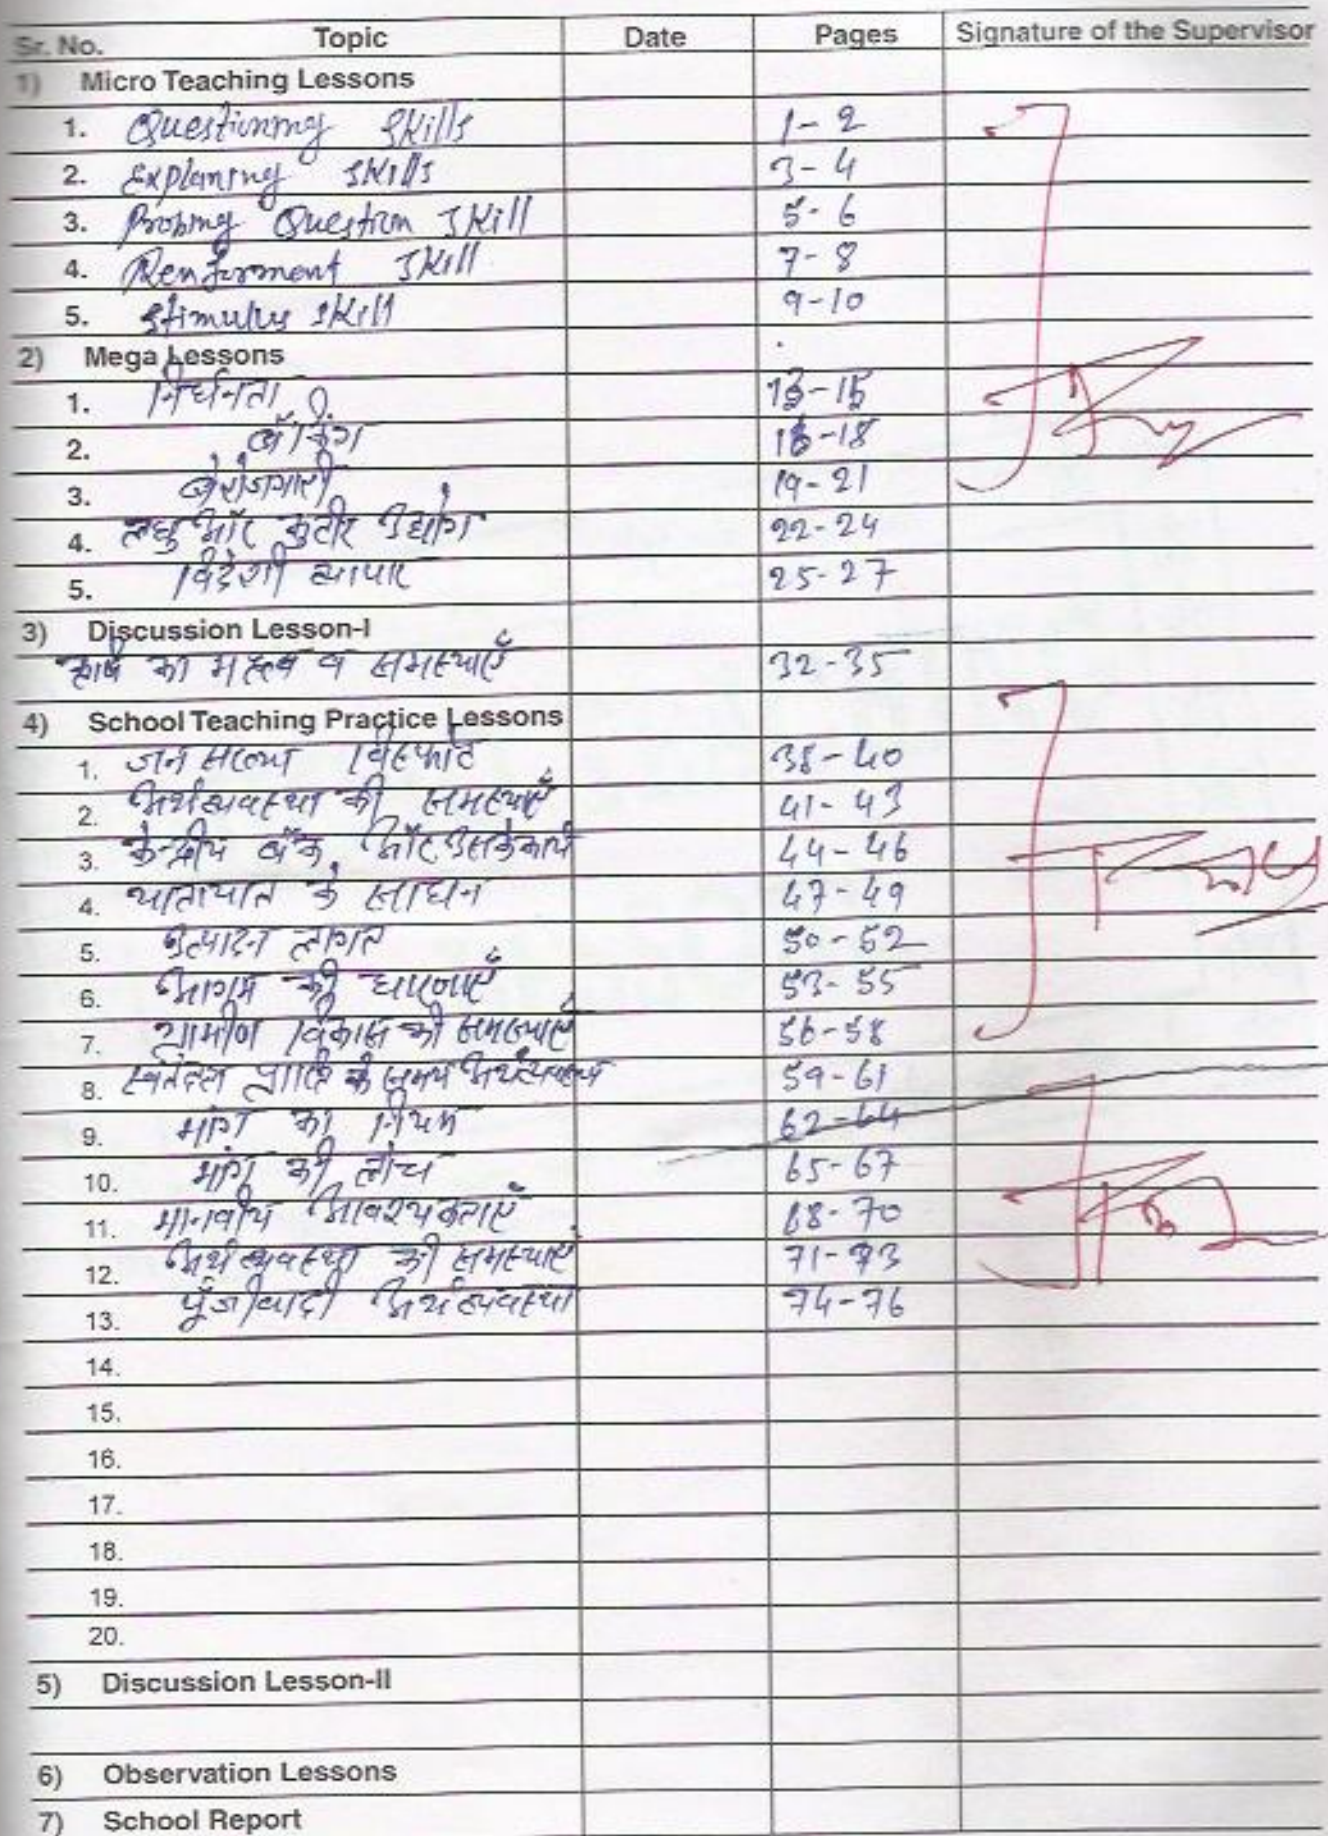 Sr. No. Topic Date Pages Signature of the Supervisor
1) Micro Teaching Lessons
1. Questioning Skills 1-2
2. Explaning Skills 3-4
3. Probing Question Skill 5-6
4. Skill 7-8
5. Stimulus Skill 9-10
2) Mega Lessons
1. निर्धनता 13-15
2. बैंकिंग 16-18
3. बेरोजगारी 19-21
4. लघु और कुटीर उद्योग 22-24
5. विदेशी व्यापार 25-27
3) Discussion Lesson-I
का महत्व व समस्याएँ 32-35
4) School Teaching Practice Lessons
1. जन विस्फोट 38-40
2. अर्थव्यवस्था की समस्याएँ 41-43
3. केन्द्रीय बैंक और उसके कार्य 44-46
4. यातायात के साधन 47-49
5. उत्पादन लागत 50-52
6. आगम की धारणाएँ 53-55
7. ग्रामीण विकास की समस्याएँ 56-58
8. के समय अर्थव्यवस्था 59-61
9. मांग का नियम 62-64
10. मांग की लोच 65-67
11. मानवीय आवश्यकताएँ 68-70
12. अर्थव्यवस्था की समस्याएं 71-73
13. पूँजीवादी अर्थव्यवस्था 74-76
14.
15.
16.
17.
18.
19.
20.
5) Discussion Lesson-II
6) Observation Lessons
7) School Report